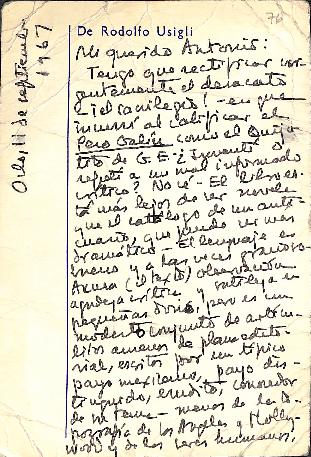 76
De Rodolfo Usigli
Oslo, 11 de septiembre
1967
Mi querido Antonio:
Tengo que rectificar ur-
gentemente el desacato
- ¡el sacrilegio! - en que
incurrí al calificar el
Pero Galín como el Quijo-
tito de G. E. ¿Inventé o
repetí a un mal informado
crítico? No sé - El libro es-
tá más lejos de ser novela
que el catálogo de un anti-
cuario, que puede ser más
dramático - El lenguaje es
bueno y a las veces grandioso.
Acusa (el texto) observación
agudeza crítica y sátira en
pequeñas dosis, pero es un
modesto conjunto de artícu-
litos amenos de plana edito-
rial, escritos por un típico
payo mexicano, payo dis-
tinguido, erudito, conocedor
de su tema - menos de la to-
pografía de Los Angeles y Holly-
wood y de los seres humanos,